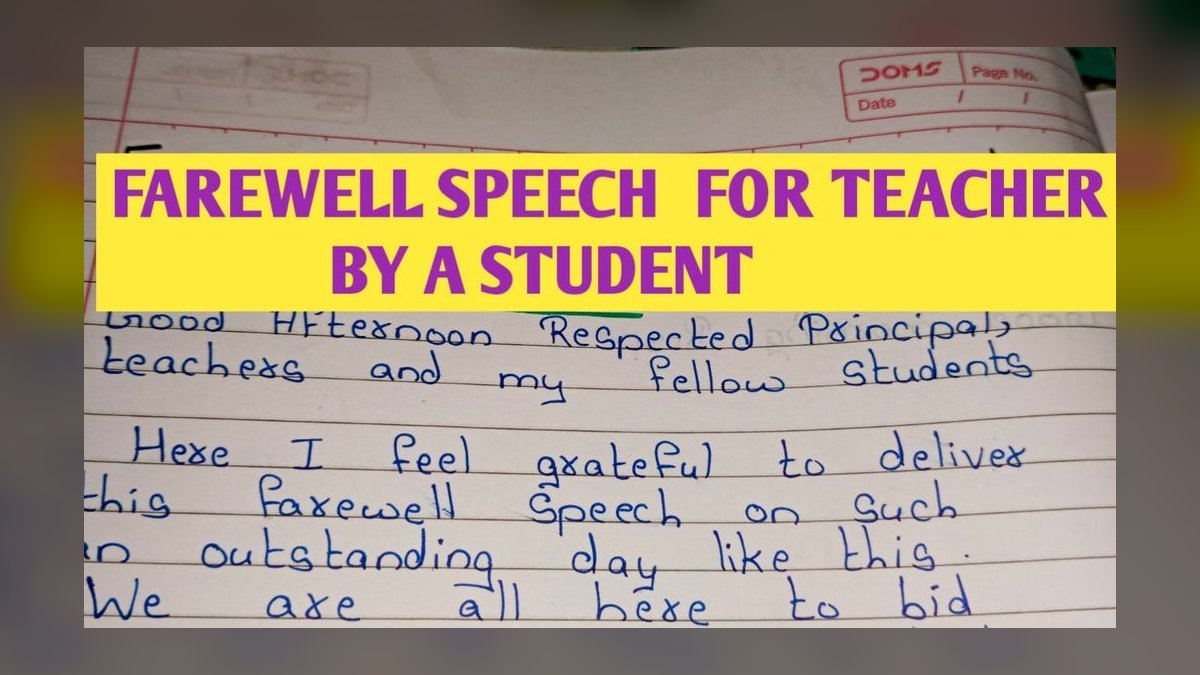 DOMS Page No.
Date / /
FAREWELL SPEECH FOR TEACHER
BY A STUDENT
Good Afternoon Respected Principal,
teachers and my fellow students
Here I feel grateful to deliver
this farewell Speech on Such
an outstanding day like this.
We are all here to bid